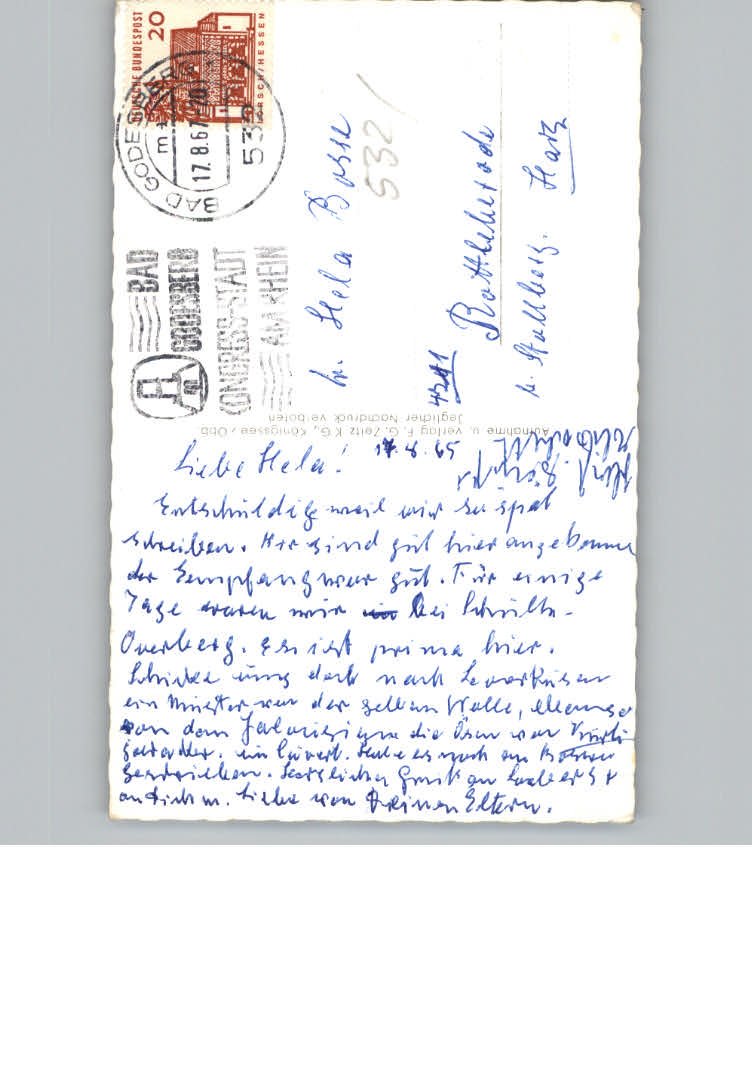 DEUTSCHE BUNDESPOST
20
LORSCH/HESSEN
BAD GODESBERG
17.8.67-20
532
BAD
GODESBERG
CONGRESS-STADT
AM RHEIN
532
Hela Bosse
4711
Rottleberode
Stollberg. Harz
Aufnahme u. Verlag F. G. Zeitz KG., Königssee/Obb
Jeglicher Nachdruck verboten
Liebe Hela!
Entschuldige weil wir so spät
schreiben. Wir sind gut hier angekommen
der Empfang war gut. Für einige
Tage waren wir bei Schulte-
Overberg. Es ist prima hier.
Schicke uns doch nach Leverkusen
ein Muster von der gelben Wolle, ebenso
von dem die Ösen von
im Kuvert. Habe es noch an
geschrieben. Herzlichen Gruß an
an Dich u. Liebe von Deinen Eltern.